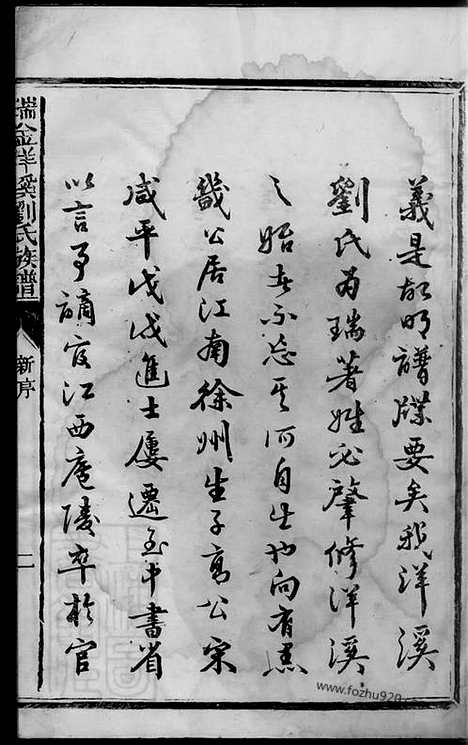 義是故明譜牒要矣我洋溪
劉氏為瑞著姓必肇修洋溪
之始者不忘其所自出也向有
幾公居江南徐州生子萬公宋
咸平戊戌進士屢遷至中書省
以言事謫官江西廬陵卒於官
瑞金洋溪劉氏族譜
新序
二
www.fozhu920.com